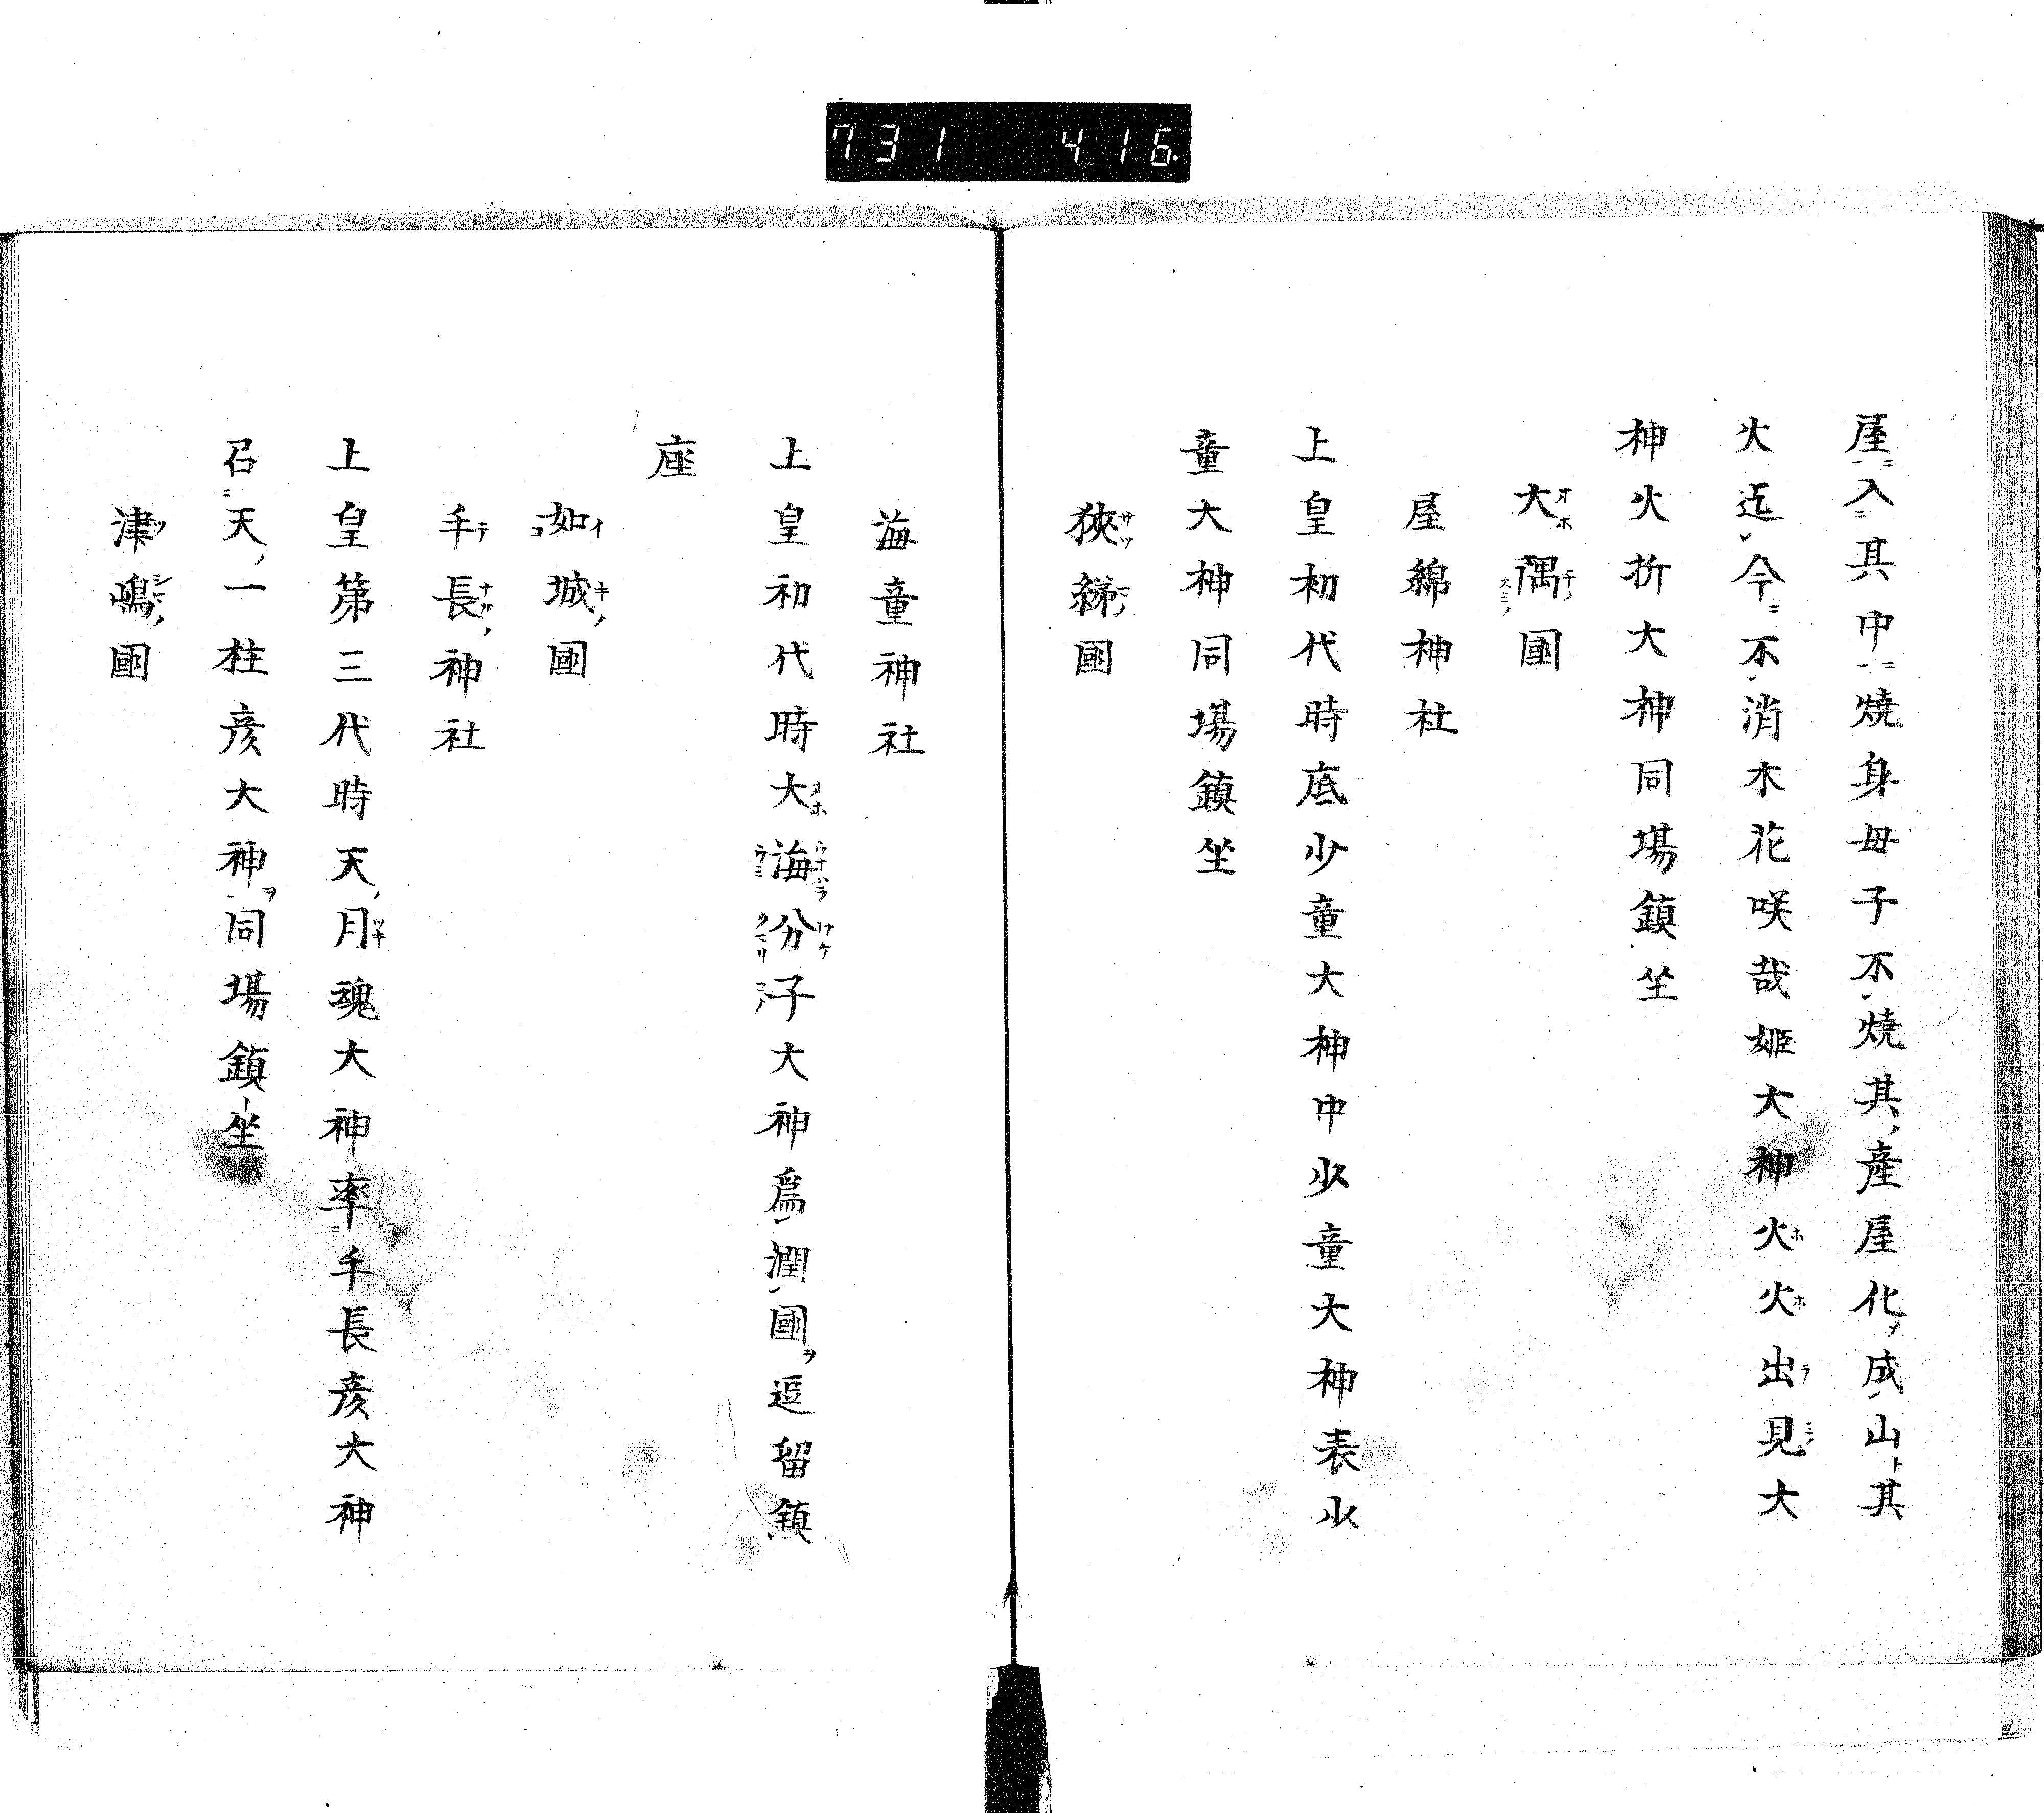 731 416.
屋入其中燒身母子不燒其産屋化成山其
火迄今不消木花咲哉姬大神火火出見大
神火折大神同場鎮坐
大隅國
屋綿神社
上皇初代時底少童大神中少童大神表少
童大神同場鎮坐
狹綈國
海童神社
上皇初代時大海分子大神爲潤國逗留鎮
座
如城國
手長神社
上皇第三代時天月魂大神率手長彦大神
召天一柱彦大神同場鎮坐
津嶋國